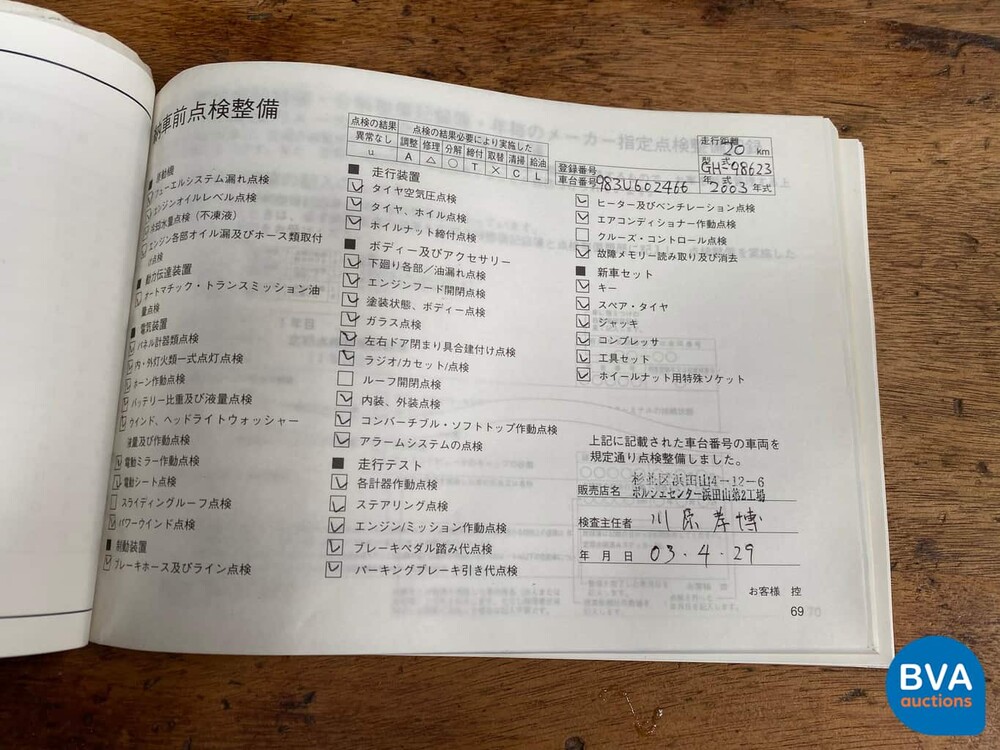 車前点検整備
点検の結果 点検の結果必要により実施した
異常なし 調整 修理 分解 締付 取替 清掃 給油
u A △ ○ T × C L
走行距離 20 km
型式 GH-98623
登録番号
車台番号 983U602466 年式 2003年式
フューエルシステム漏れ点検
エンジンオイルレベル点検
冷却水量点検(不凍液)
エンジン各部オイル漏及びホース類取付
け点検
■ 動力伝達装置
オートマチック・トランスミッション油
量点検
■ 電気装置
パネル計器類点検
内・外灯火類一式点灯点検
ホーン作動点検
バッテリー比重及び液量点検
ウインド、ヘッドライトウォッシャー
液量及び作動点検
電動ミラー作動点検
電動シート点検
スライディングルーフ点検
パワーウインド点検
■ 制動装置
ブレーキホース及びライン点検
■ 走行装置
タイヤ空気圧点検
タイヤ、ホイル点検
ホイルナット締付点検
■ ボディー及びアクセサリー
下廻り各部/油漏れ点検
エンジンフード開閉点検
塗装状態、ボディー点検
ガラス点検
左右ドア閉まり具合建付け点検
ラジオ/カセット/点検
ルーフ開閉点検
内装、外装点検
コンバーチブル・ソフトトップ作動点検
アラームシステムの点検
■ 走行テスト
各計器作動点検
ステアリング点検
エンジン/ミッション作動点検
ブレーキペダル踏み代点検
パーキングブレーキ引き代点検
ヒーター及びベンチレーション点検
エアコンディショナー作動点検
クルーズ・コントロール点検
故障メモリー読み取り及び消去
■ 新車セット
キー
スペア・タイヤ
ジャッキ
コンプレッサ
工具セット
ホイールナット用特殊ソケット
上記に記載された車台番号の車両を
規定通り点検整備しました。
杉並区浜田山4-12-6
販売店名 ポルシェセンター浜田山第2工場
検査主任者 川原孝博
年月日 03.4.29
お客様 控
69
BVA
auctions